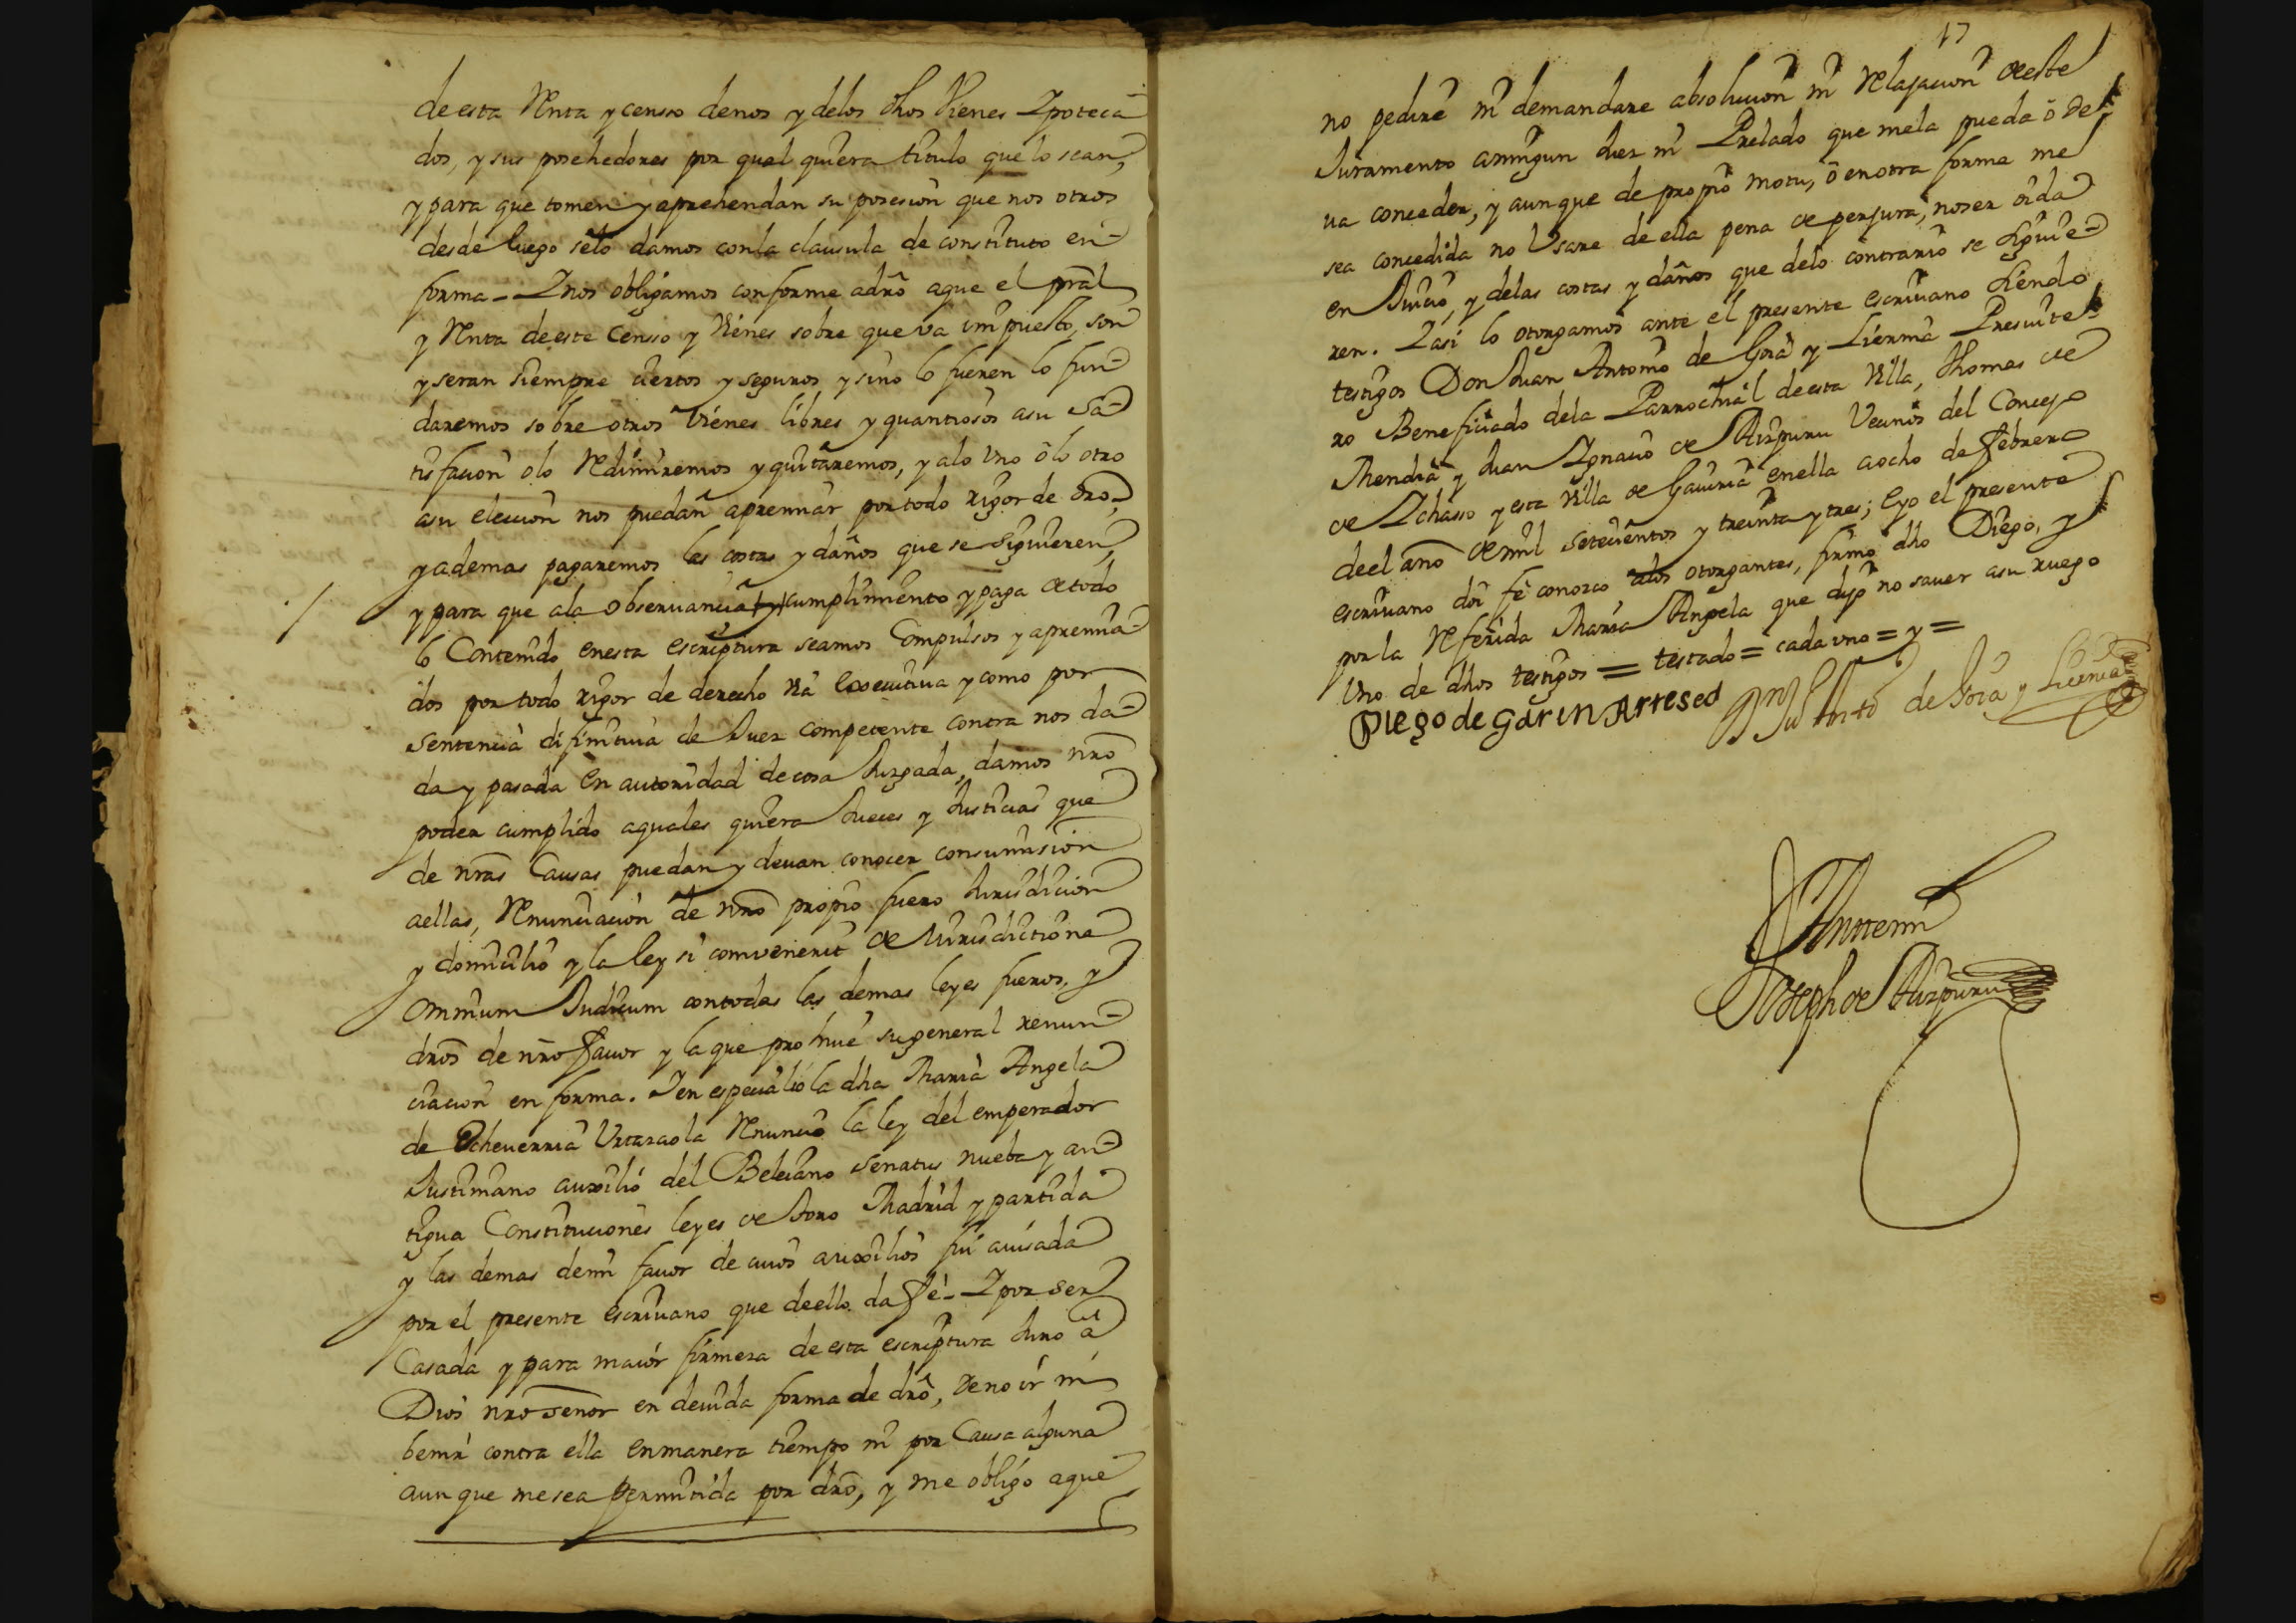 de esta Renta y censo de nos y delos dhos Vienes Ypoteca
dos, y sus posehedores por qual quiera titulo que lo sean,
y para que tomen y aprehendan su posesion que nos otros
desde luego selo damos conla clausula de constituto en
forma - Y nos obligamos conforme a dro aque el pral
y Renta de este Censo y Vienes sobre que va impuesto, son
y seran siempre ciertos y seguros y sino lo fueren lo fun-
daremos sobre otros Vienes libres y quantiosos asu sa-
tisfacion o lo Redimiremos y quitaremos, y alo uno ó lo otro
asu eleccion nos puedan apremiar por todo rigor de dro,
y ademas pagaremos las costas y daños que se siguieren,
y para que ala observancia cumplimiento y paga de todo
lo Contenido enesta escriptura seamos Compulsos y apremia-
dos por todo rigor de derecho Via executiua y como por
sentencia difinitiua de Juez competente contra nos da-
da y pasada en autoridad de cosa Juzgada, damos nro
poder cumplido aquales quiera Jueces y Justicias que
de nras Causas puedan y deuan conocer consumision
aellas, Renunciacion de nro propio fuero Jurisdicion
y domicilio y la ley si comvenerit de Jurisdictione
omnium Judicum contodas las demas leyes fueros, y
dros de nro favor y la que prohiue su general renun-
ciacion en forma. Y en especial io la dha Maria Angela
de Echeuerria Urtazaola Renuncio la ley del emperador
Justiniano auxilio del Beleiano senatus nueba y an-
tigua Constituciones leyes de toro Madrid y partida
y las demas demi fauor de cuios auxilios fui auisada
por el presente escriuano que deello da fé - Y por ser
Casada y para maior firmeza de esta escriptura Juro a
Dios nro señor en deuida forma de dro, de no ir ni
benir contra ella enmanera tiempo ni por Causa alguna
aun que me sea permitida por dro, y me obligo aque
17
no pedire ni demandare absolucion ni Relajacion de este
Juramento aningun Juez ni Prelado que mela pueda ó de-
ua conceder, y aunque de propio motu, ó enotra forma me
sea concedida no Usare de ella pena de perjura, noser oida
en Juicio, y delas costas y daños que delo contrario se siguie-
ren. Y asi lo otorgamos ante el presente escriuano siendo
testigos Don Juan Antonio de Goia y Lierma Presuite-
ro Beneficiado dela Parrochial de esta Villa, Thomas de
Mendia y Juan Ygnacio de Aizpuru Vecinos del Concejo
de Ychasso y esta Villa de Gauiria enella a ocho de febrero
de el año de mil setecientos y treinta y tres; e yo el presente
escriuano doi fe conozco alos otorgantes, firmó dho Diego, y
por la Referida Maria Angela que dijo no sauer asu ruego
uno de dhos testigos = testado = cada uno = y =
Diego de Garin Arreseo Dn Ju Anto de Goia y Lierma
Antemi
Joseph de Aizpuru